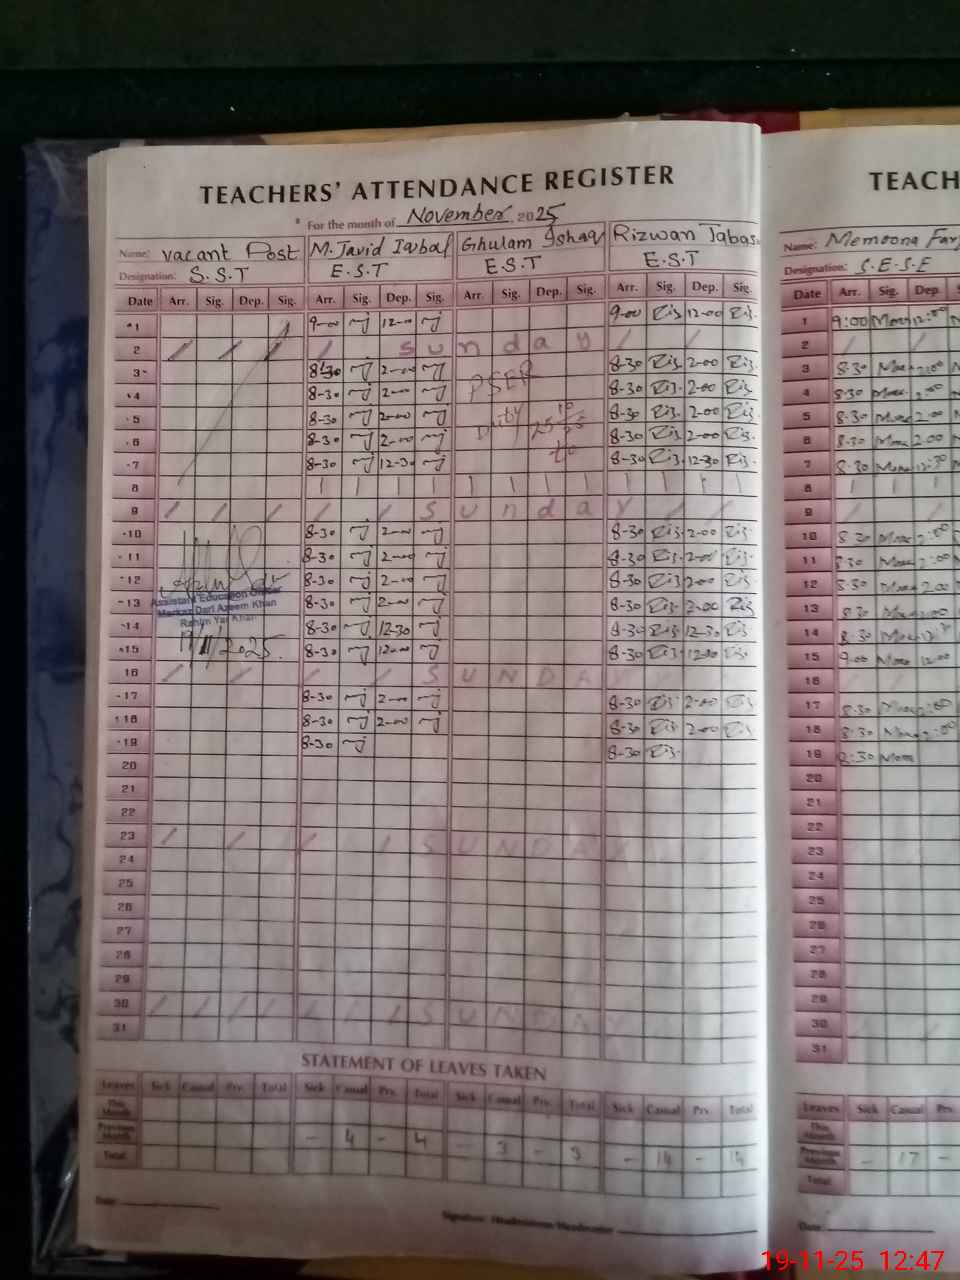 TEACHERS' ATTENDANCE REGISTER
For the month of November 2025
Name: vacant Post M. Javid Iqbal Ghulam Ishaq Rizwan Iqbal
Designation: S.S.T E.S.T E.S.T E.S.T
Date Arr. Sig. Dep. Sig. Arr. Sig. Dep. Sig. Arr. Sig. Dep. Sig. Arr. Sig. Dep. Sig.
1 9-00 12-00 9-00 Riz 12-00 Riz.
2 Sunday
3 8-30 2-00 PSER 8-30 Riz. 2-00 Riz.
4 8-30 2-00 8-30 Riz. 2-00 Riz.
5 8-30 2-00 Duty 25 10 25 8-30 Riz. 2-00 Riz.
6 8-30 2-00 to 8-30 Riz. 2-00 Riz.
7 8-30 12-30 8-30 Riz. 12-30 Riz.
8
9 Sunday
10 8-30 2-00 8-30 Riz. 2-00 Riz.
11 8-30 2-00 8-30 Riz. 2-00 Riz.
12 8-30 2-00 8-30 Riz. 2-00 Riz.
Assistant Education Officer
Markaz Dari Azeem Khan
Rahim Yar Khan
17/11/2025
13 8-30 2-00 8-30 Riz. 2-00 Riz
14 8-30 12-30 8-30 Riz. 12-30 Riz
15 8-30 12-00 8-30 Riz. 12-00 Riz.
16 SUNDAY
17 8-30 2-00 8-30 Riz. 2-00 Riz
18 8-30 2-00 8-30 Riz. 2-00 Riz
19 8-30 8-30 Riz.
20
21
22
23 SUNDAY
24
25
26
27
28
29
30 SUNDAY
31
STATEMENT OF LEAVES TAKEN
Leaves Sick Casual Prv. Total Sick Casual Prv. Total Sick Casual Prv. Total Sick Casual Prv. Total
This Month
Previous Month - 4 - 4 - 3 - 3 - 14 - 14
Total
Date
Signature: Headmistress/Headmaster
TEACH
Name: Memoona
Designation: S.E.S.E
Date Arr. Sig. Dep.
1 9:00 12:00
2
3 8:30 2:00
4 8:30 2:00
5 8:30 2:00
6 8:30 2:00
7 8:30 12:30
8
9
10 8:30 2:00
11 8:30 2:00
12 8:30 2:00
13 8:30 2:00
14 8:30 12:30
15 9:00 12:00
16
17 8:30 2:00
18 8:30 2:00
19 8:30
20
21
22
23
24
25
26
27
28
29
30
31
Leaves Sick Casual Prv.
This Month
Previous Month - 17 -
Total
Date
19-11-25 12:47